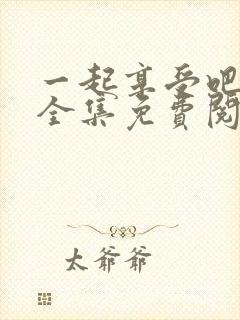 一起享受吧
全集免費閱
太爺爺